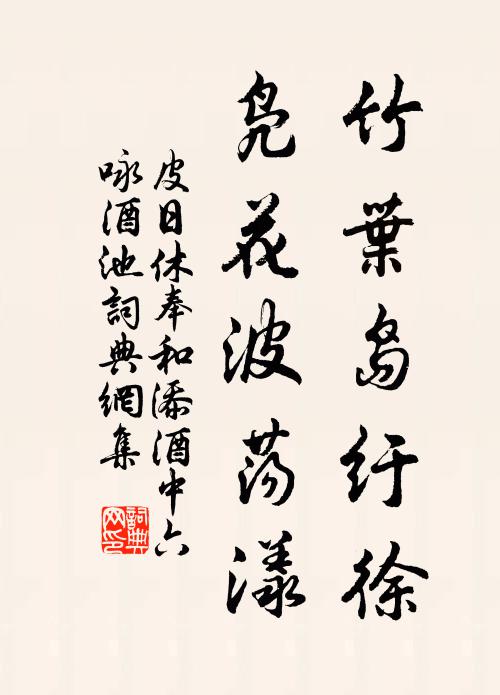 竹葉島紆徐
鳧花波蕩漾
皮日休奉和添酒中六
咏酒池詞典網集
詞典網印